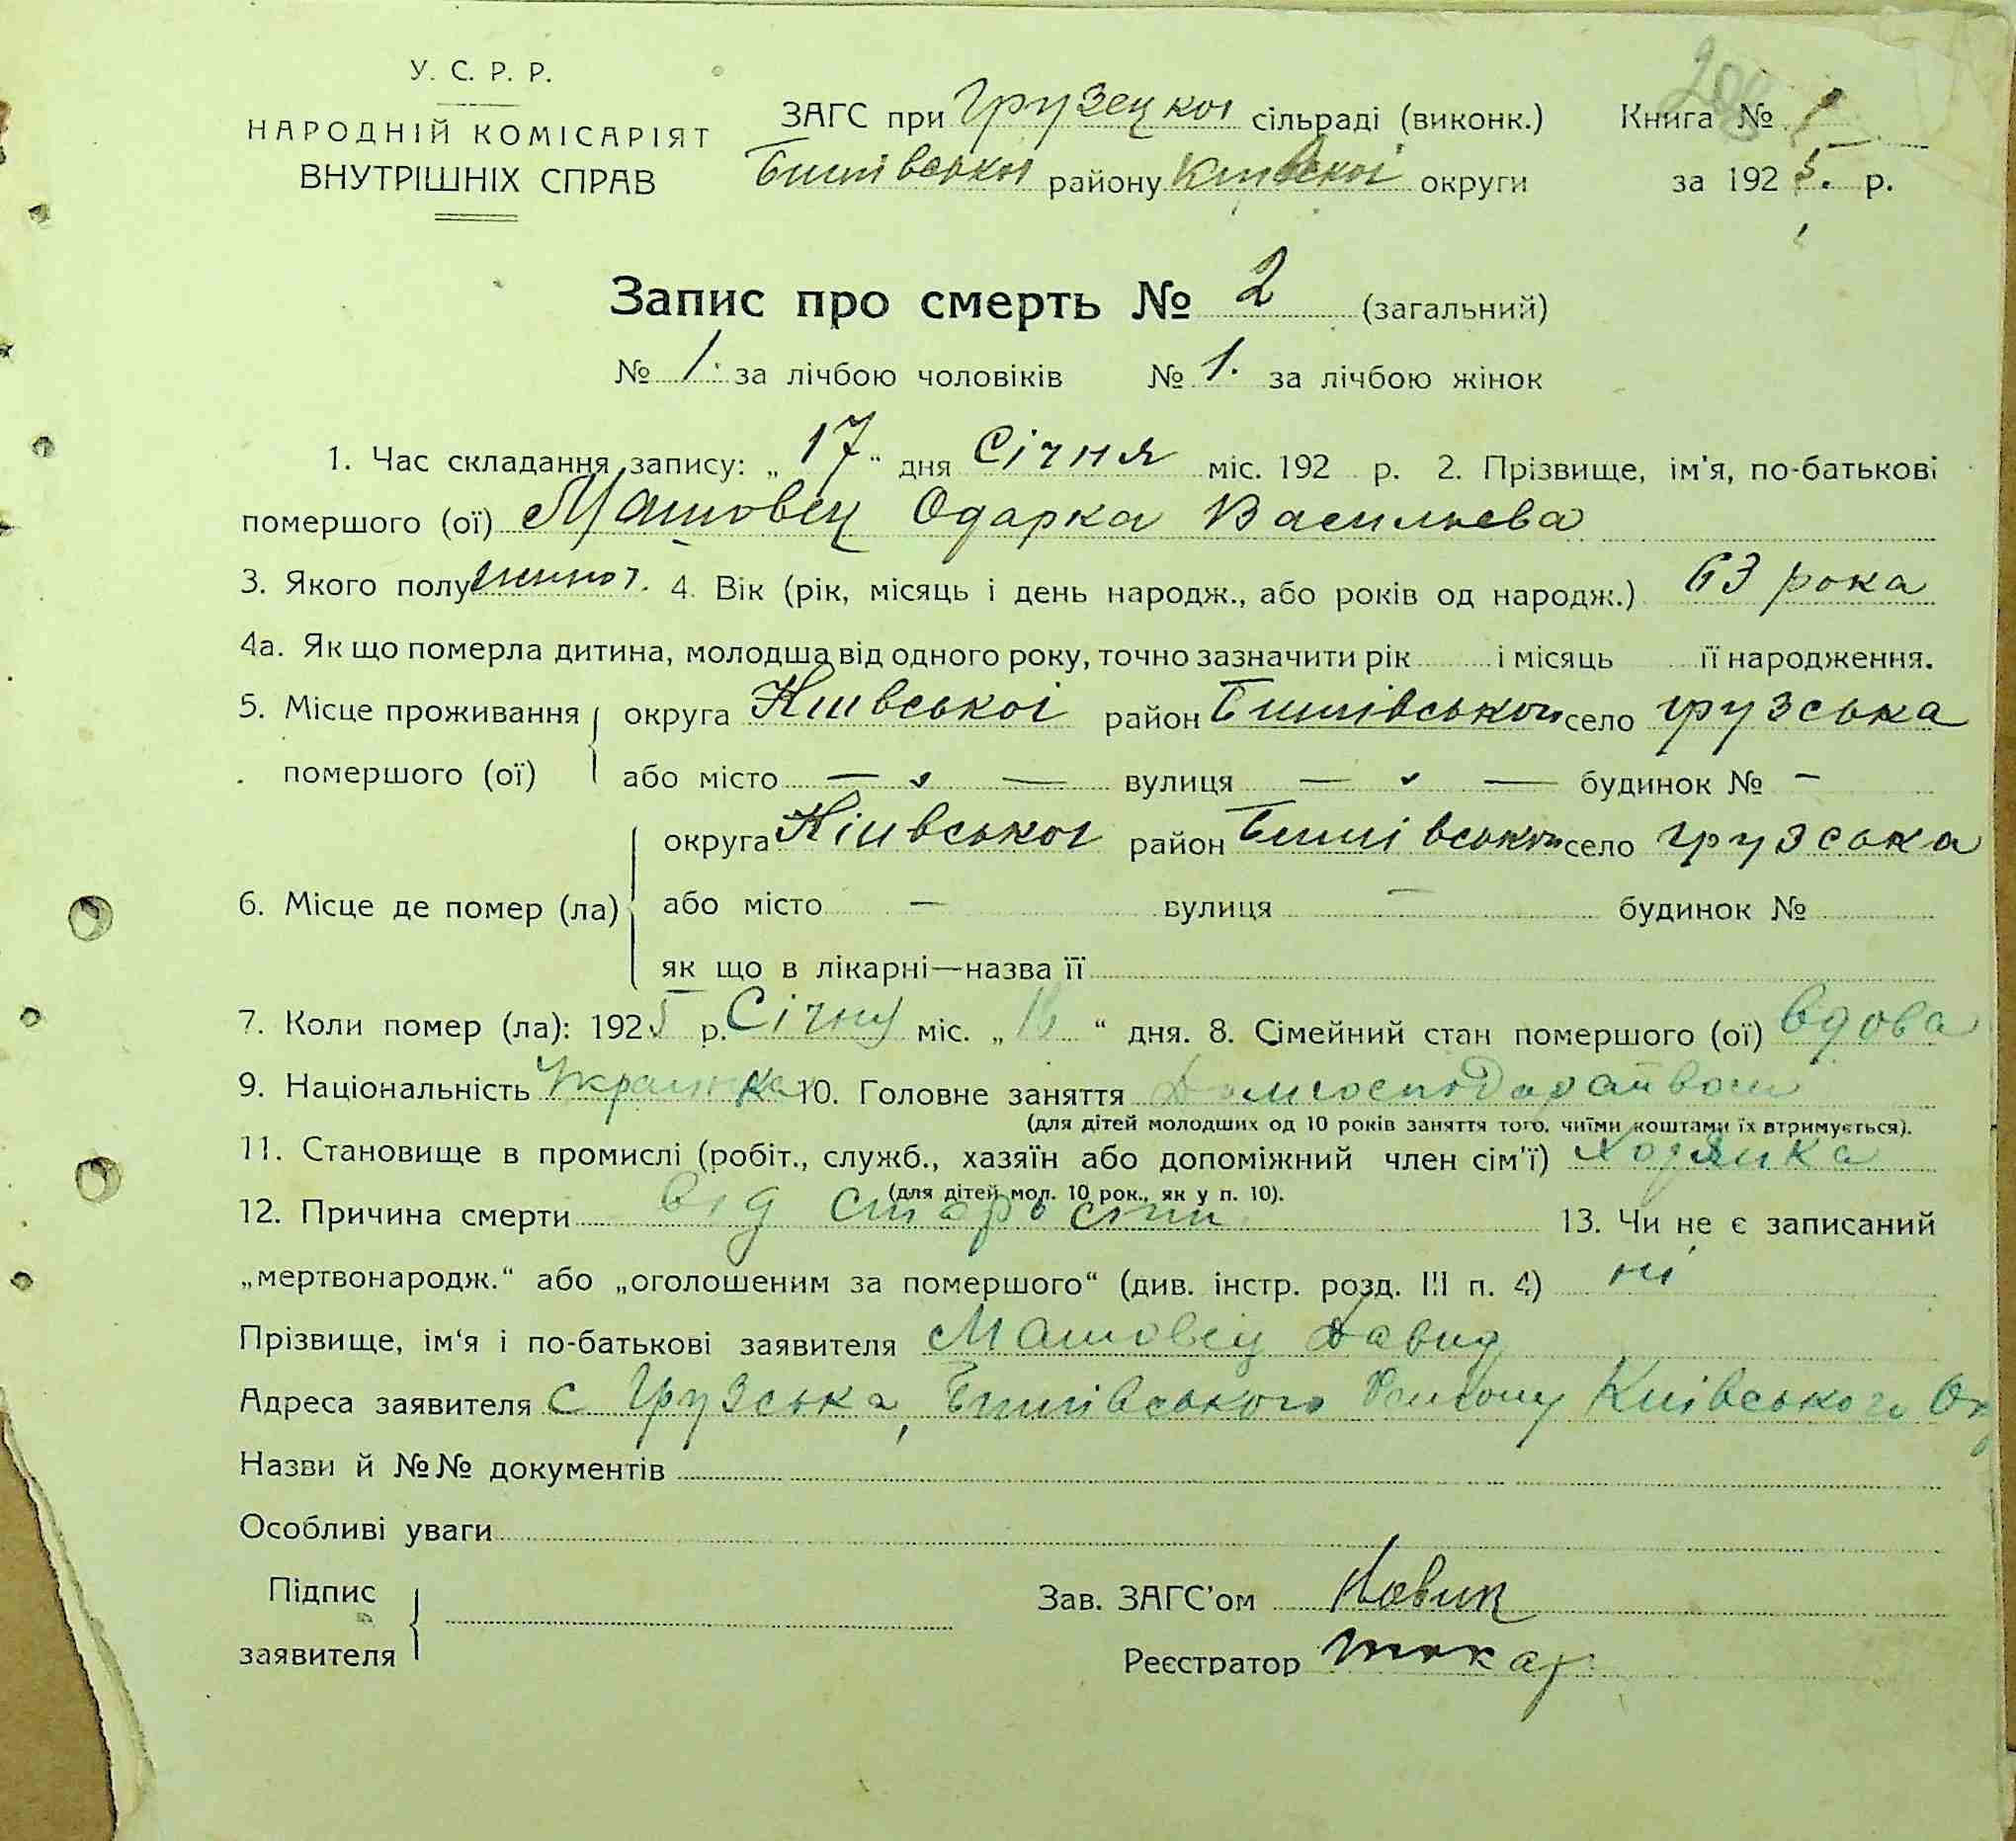 У. С. Р. Р.
НАРОДНІЙ КОМІСАРІЯТ
ВНУТРІШНІХ СПРАВ
ЗАГС при Грузецкоі сільраді (виконк.)
Бишівськоі району Київскоі округи
Книга №
за 1925. р.
Запис про смерть № 2 (загальний)
№ 1. за лічбою чоловіків № 1. за лічбою жінок
1. Час складання запису: „17“ дня Січня міс. 192 р. 2. Прізвище, ім'я, по-батькові
помершого (ої) Машовец Одарка Васильева
3. Якого полу 4. Вік (рік, місяць і день народж., або років од народж.) 63 рока
4а. Як що померла дитина, молодша від одного року, точно зазначити рік і місяць її народження.
5. Місце проживання округа Київськоі район Бишівськоі село грузська
помершого (ої) або місто — — вулиця — — будинок № —
округа Київськоі район Бишівськоі село грузська
6. Місце де помер (ла) або місто — вулиця — будинок №
як що в лікарні—назва її
7. Коли помер (ла): 1925 р. Січну міс. „16“ дня. 8. Сімейний стан помершого (ої) вдова
9. Національність Украинка 10. Головне заняття
(для дітей молодших од 10 років заняття того, чиїми коштами їх втримується).
11. Становище в промислі (робіт., служб., хазяїн або допоміжний член сім'ї) хозяйка
(для дітей мол. 10 рок., як у п. 10).
12. Причина смерти від старости 13. Чи не є записаний
„мертвонародж.“ або „оголошеним за помершого“ (див. інстр. розд. III п. 4) ні
Прізвище, ім'я і по-батькові заявителя Машовец Давид
Адреса заявителя с Грузська, Бишівського Району Київського Окр
Назви й №№ документів
Особливі уваги
Підпис
заявителя
Зав. ЗАГС'ом Новик
Реєстратор Токар